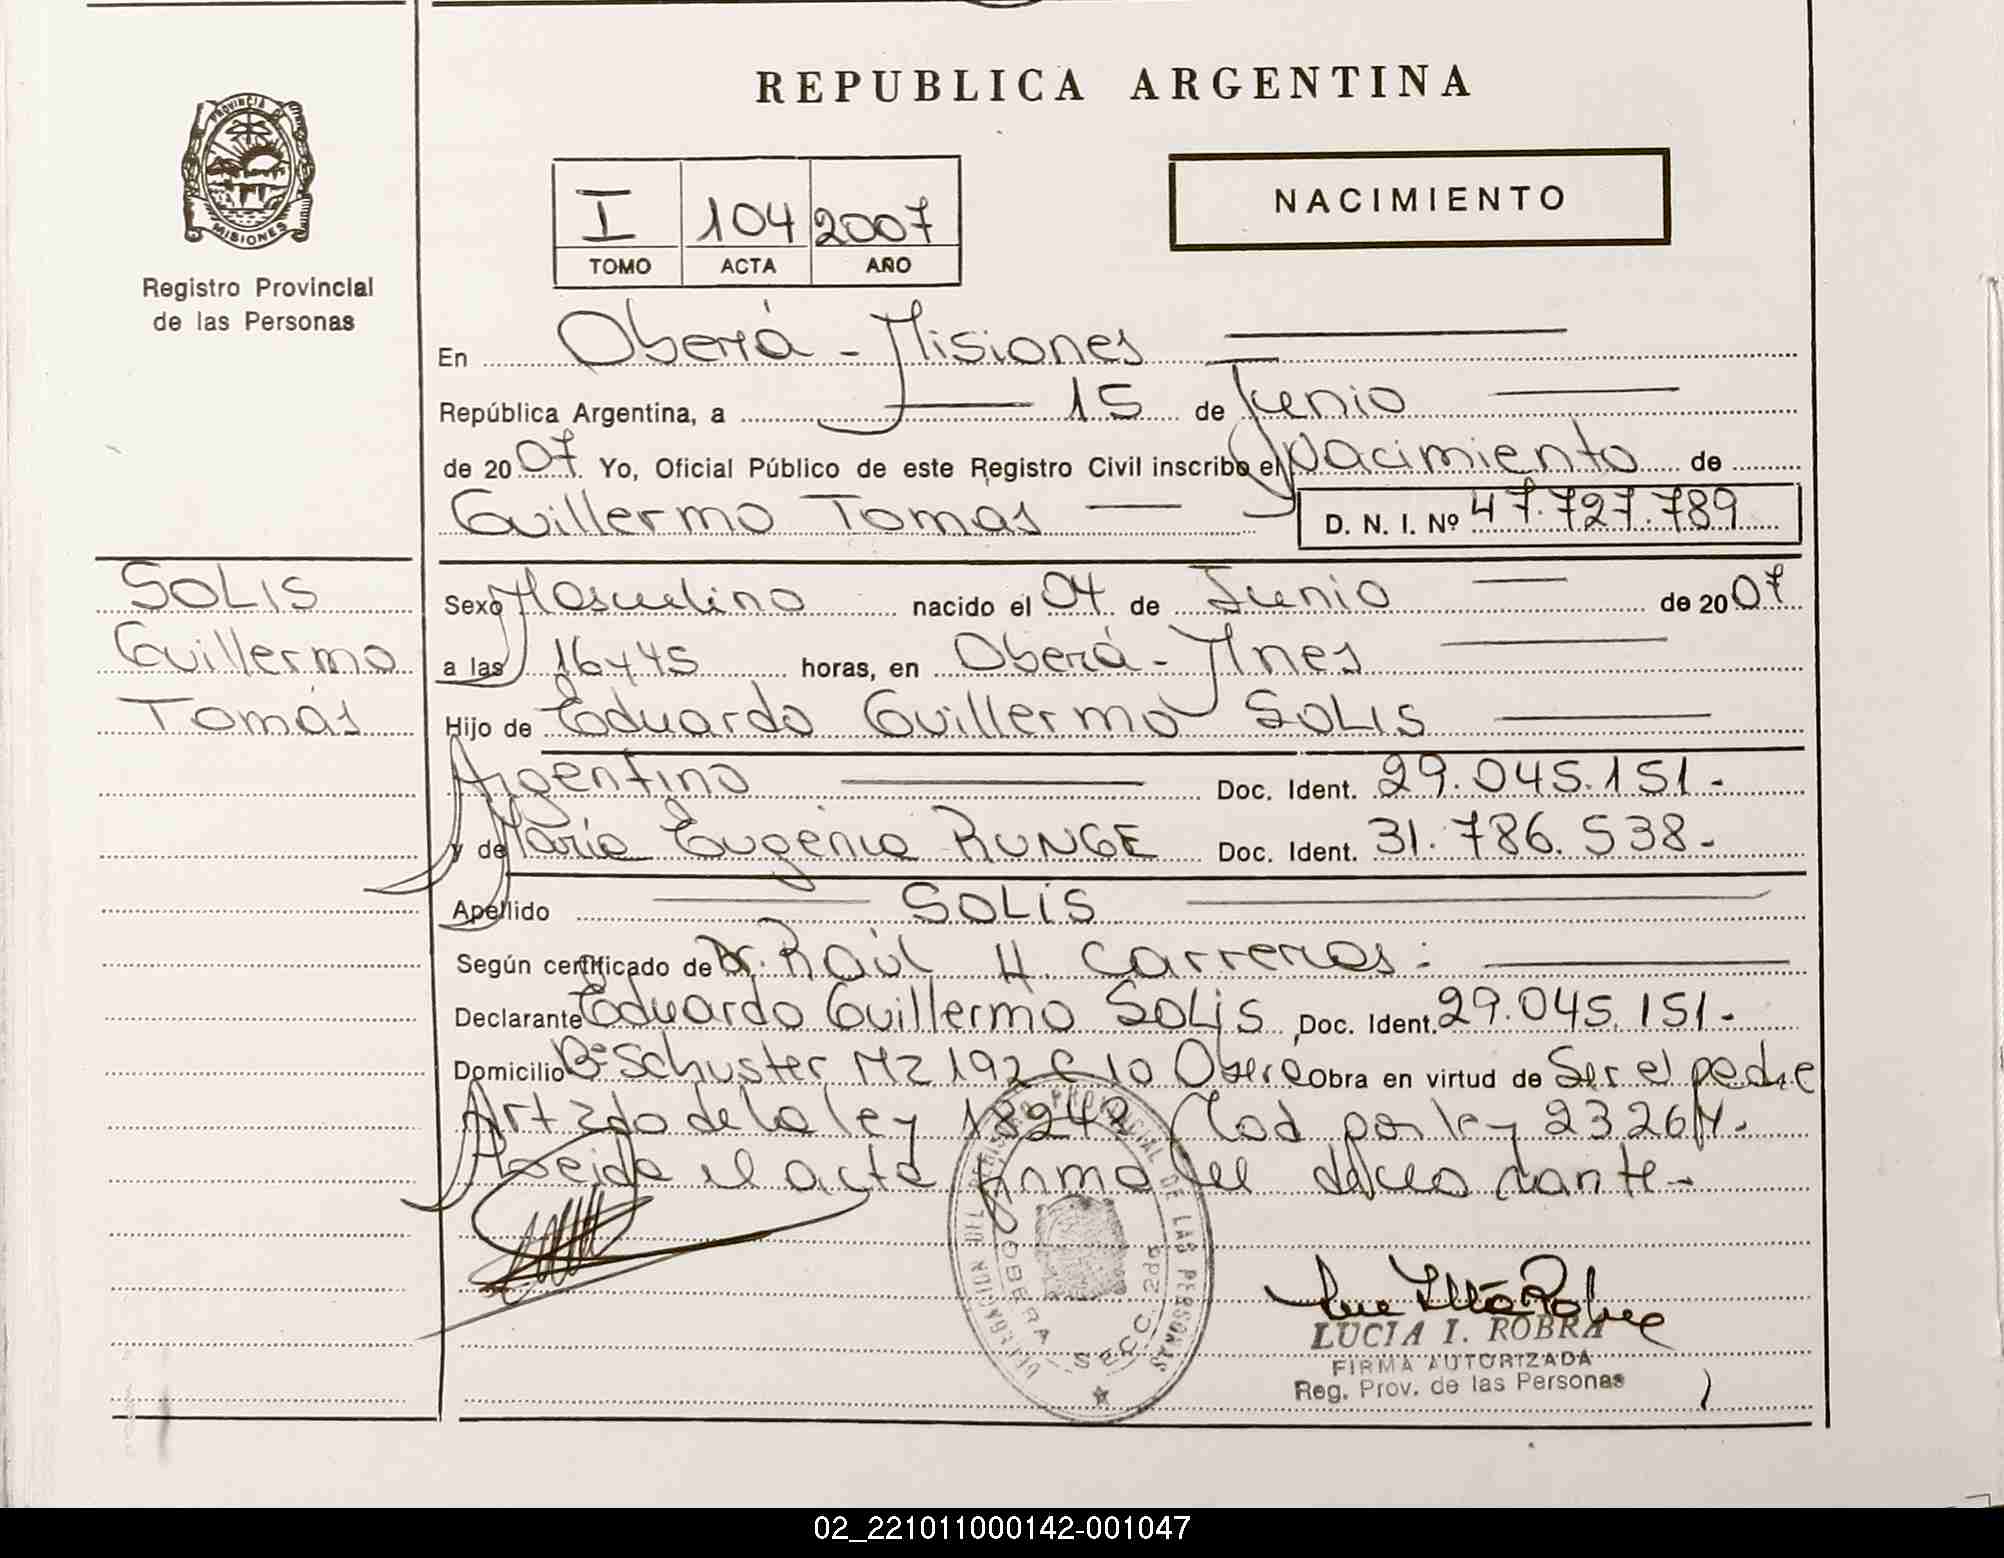 REPUBLICA ARGENTINA
PROVINCIA DE
MISIONES
Registro Provincial
de las Personas
I 104 2007
TOMO ACTA AÑO
NACIMIENTO
En Oberá - Misiones
República Argentina, a 15 de Junio
de 2007. Yo, Oficial Público de este Registro Civil inscribo el Nacimiento de
Guillermo Tomas D. N. I. Nº 47.727.789
SOLIS
Guillermo
Tomás
Sexo Masculino nacido el 04 de Junio de 2007
a las 16y45 horas, en Oberá - Mnes
Hijo de Eduardo Guillermo SOLIS
Argentino Doc. Ident. 29.045.151.-
y de María Eugenia RUNGE Doc. Ident. 31.786.538.-
Apellido SOLIS
Según certificado de Dr. Raúl H. Carreras.
Declarante Eduardo Guillermo SOLIS Doc. Ident. 29.045.151.-
Domicilio Bº Schuster Mz 192 C 10 Oberá Obra en virtud de Ser el padre
Art 2do de la ley 18248 Mod por ley 23264.
Leida el acta firma el declarante-
DELEGACION DEL REGISTRO PROVINCIAL DE LAS PERSONAS
OBERA SECC. 2da
LUCIA I. ROBRA
FIRMA AUTORIZADA
Reg. Prov. de las Personas
02_221011000142-001047